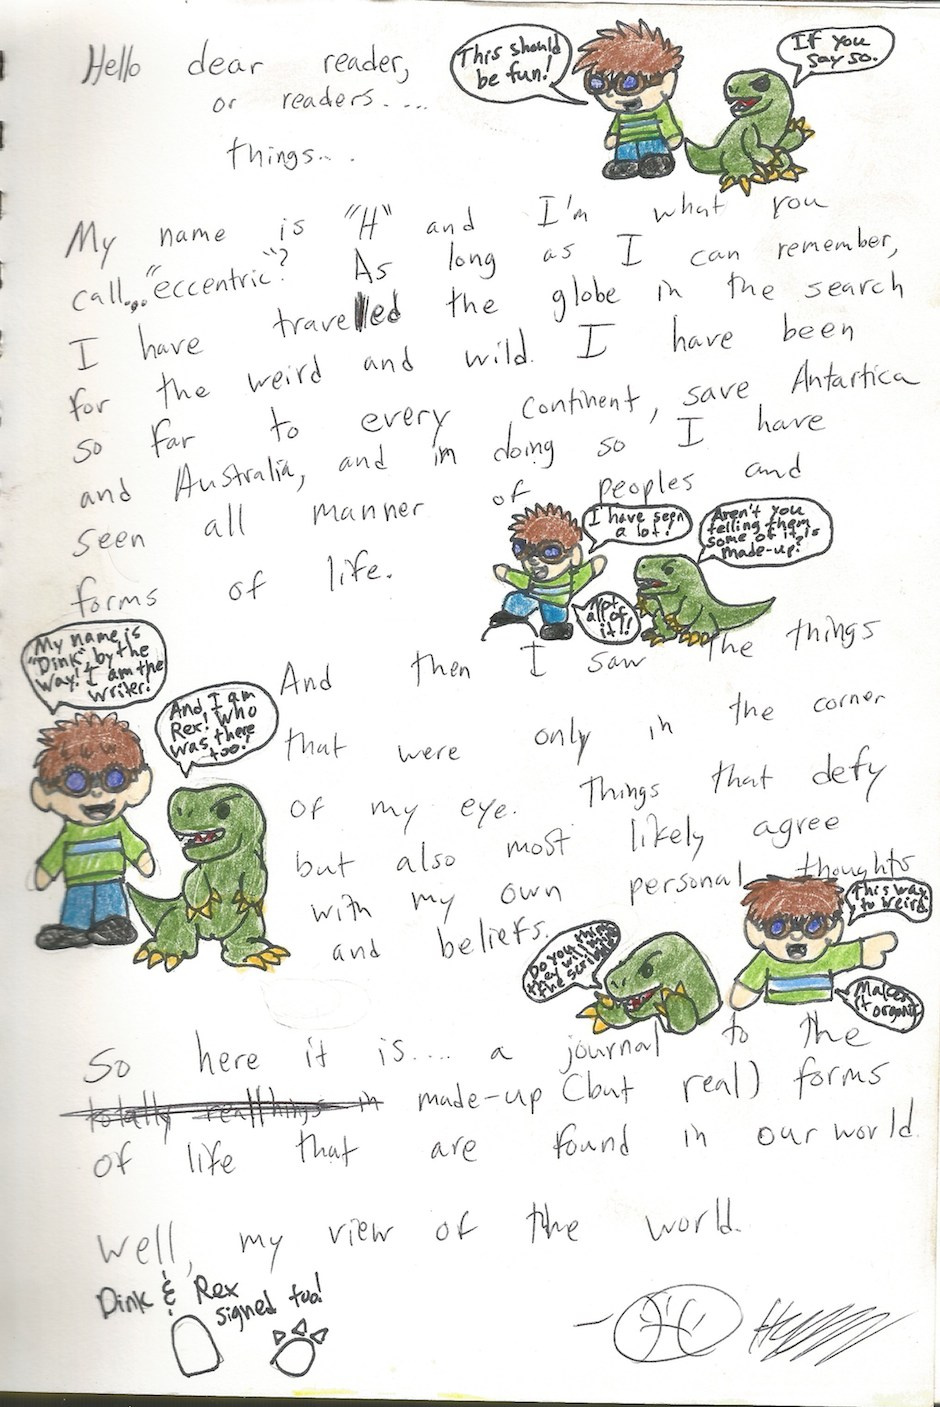 Hello dear reader,
or readers....
things...
This should
be fun!
If you
say so.
My name is "H" and I'm what you
call..."eccentric"? As long as I can remember,
I have travelled the globe in the search
for the weird and wild. I have been
so far to every continent, save Antartica
and Australia, and in doing so I have
seen all manner of peoples and
forms of life.
I have seen
a lot!
Aren't you
telling them
some of it is
made-up?
Not
all of
it!!
My name is
"Dink" by the
way! I am the
writer!
And I am
Rex! Who
was there
too!
And then I saw the things
that were only in the corner
of my eye. Things that defy
but also most likely agree
with my own personal thoughts
and beliefs.
Do you think
they will mind
the
This way
to weird!
Makes
it
So here it is.... a journal to the
totally real things in made-up (but real) forms
of life that are found in our world.
Well, my view of the world.
Dink & Rex
signed too!